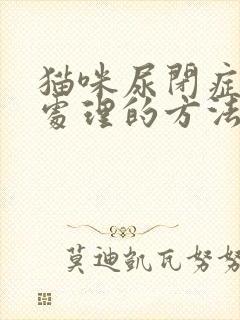 猫咪尿閉症
處理的方法
莫迪凱瓦努努